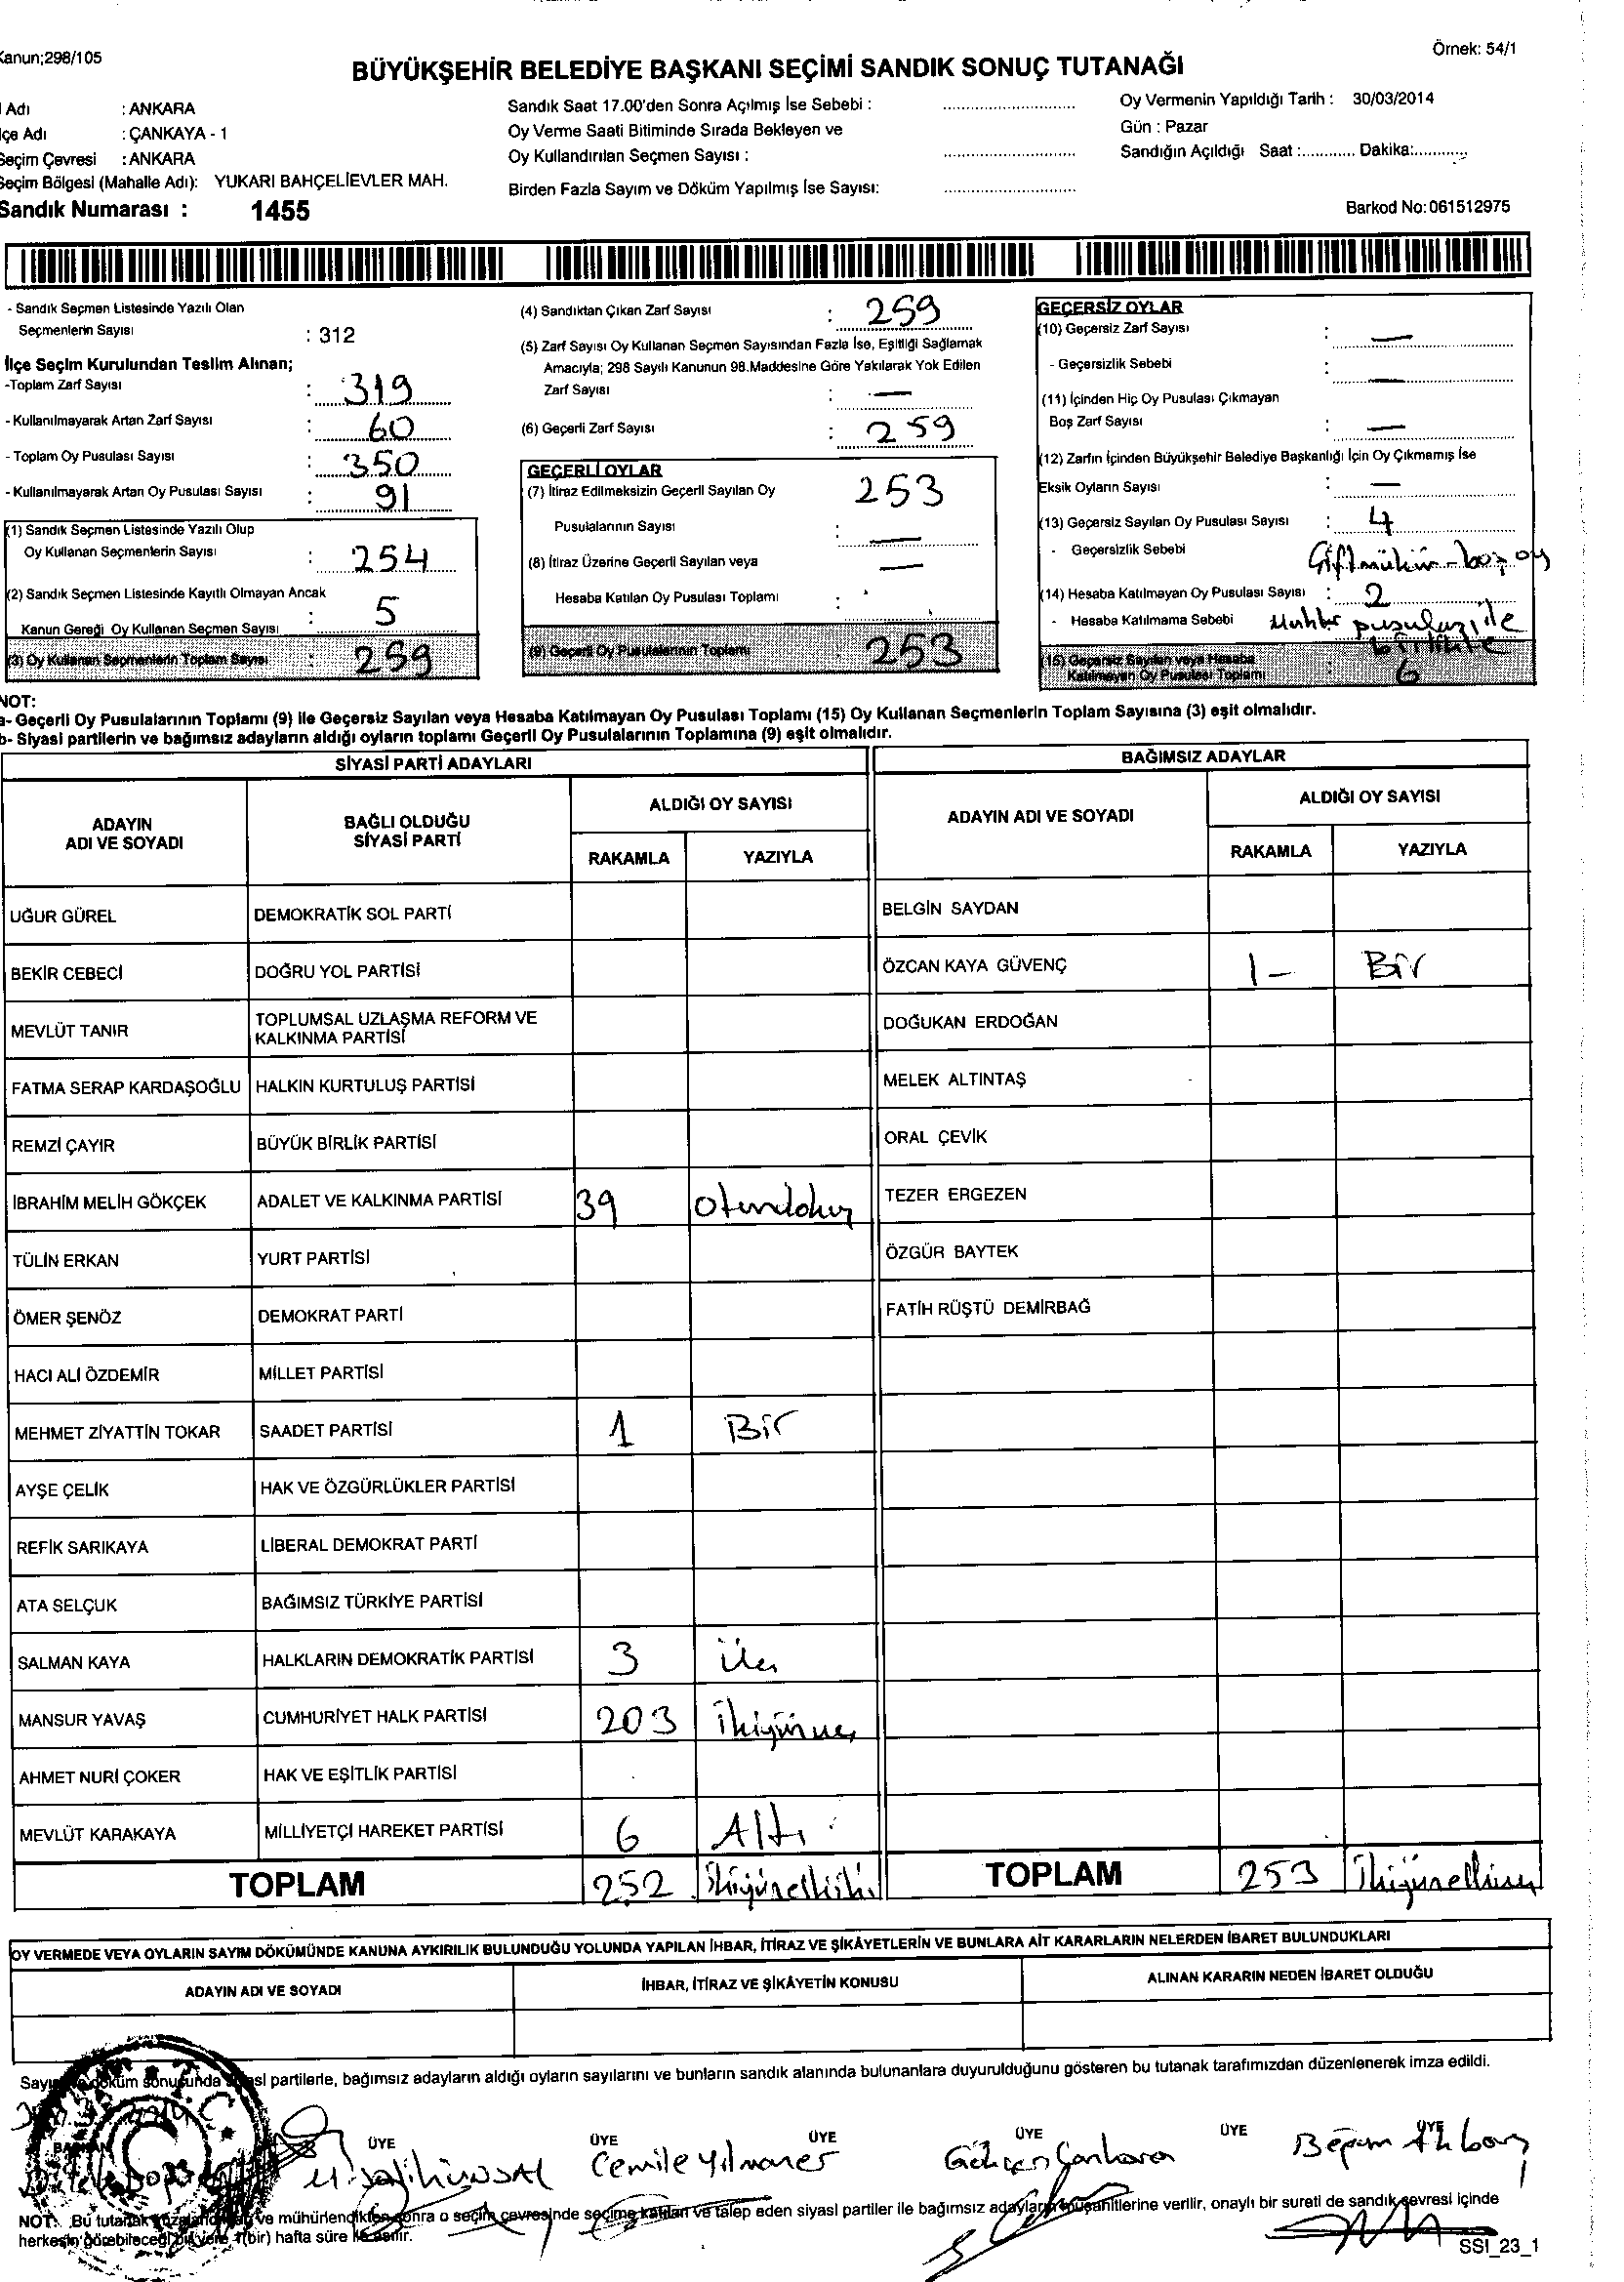 Kanun;298/105
Örnek: 54/1
BÜYÜKŞEHİR BELEDİYE BAŞKANI SEÇİMİ SANDIK SONUÇ TUTANAĞI
l Adı : ANKARA
lçe Adı : ÇANKAYA - 1
Seçim Çevresi : ANKARA
Seçim Bölgesi (Mahalle Adı): YUKARI BAHÇELİEVLER MAH.
Sandık Numarası : 1455
Sandık Saat 17.00'den Sonra Açılmış İse Sebebi :
Oy Verme Saati Bitiminde Sırada Bekleyen ve
Oy Kullandırılan Seçmen Sayısı :
Birden Fazla Sayım ve Döküm Yapılmış İse Sayısı:
Oy Vermenin Yapıldığı Tarih : 30/03/2014
Gün : Pazar
Sandığın Açıldığı Saat :........... Dakika:...........
Barkod No:061512975
- Sandık Seçmen Listesinde Yazılı Olan
Seçmenlerin Sayısı : 312
İlçe Seçim Kurulundan Teslim Alınan;
-Toplam Zarf Sayısı : 319
- Kullanılmayarak Artan Zarf Sayısı : 60
- Toplam Oy Pusulası Sayısı : 350
- Kullanılmayarak Artan Oy Pusulası Sayısı : 91
(1) Sandık Seçmen Listesinde Yazılı Olup
Oy Kullanan Seçmenlerin Sayısı : 254
(2) Sandık Seçmen Listesinde Kayıtlı Olmayan Ancak
Kanun Gereği Oy Kullanan Seçmen Sayısı : 5
(3) Oy Kullanan Seçmenlerin Toplam Sayısı : 259
(4) Sandıktan Çıkan Zarf Sayısı : 259
(5) Zarf Sayısı Oy Kullanan Seçmen Sayısından Fazla İse, Eşitliği Sağlamak
Amacıyla; 298 Sayılı Kanunun 98.Maddesine Göre Yakılarak Yok Edilen
Zarf Sayısı : —
(6) Geçerli Zarf Sayısı : 259
GEÇERLİ OYLAR
(7) İtiraz Edilmeksizin Geçerli Sayılan Oy 253
Pusulalarının Sayısı : —
(8) İtiraz Üzerine Geçerli Sayılan veya —
Hesaba Katılan Oy Pusulası Toplamı :
(9) Geçerli Oy Pusulalarının Toplamı : 253
GEÇERSİZ OYLAR
(10) Geçersiz Zarf Sayısı : —
- Geçersizlik Sebebi : —
(11) İçinden Hiç Oy Pusulası Çıkmayan
Boş Zarf Sayısı : —
(12) Zarfın İçinden Büyükşehir Belediye Başkanlığı İçin Oy Çıkmamış İse
Eksik Oyların Sayısı : —
(13) Geçersiz Sayılan Oy Pusulası Sayısı : 4
- Geçersizlik Sebebi Çift mühür - boş oy
(14) Hesaba Katılmayan Oy Pusulası Sayısı : 2
- Hesaba Katılmama Sebebi Muhtar pusulası ile
birlikte
(15) Geçersiz Sayılan veya Hesaba
Katılmayan Oy Pusulası Toplamı : 6
NOT:
a- Geçerli Oy Pusulalarının Toplamı (9) ile Geçersiz Sayılan veya Hesaba Katılmayan Oy Pusulası Toplamı (15) Oy Kullanan Seçmenlerin Toplam Sayısına (3) eşit olmalıdır.
b- Siyasi partilerin ve bağımsız adayların aldığı oyların toplamı Geçerli Oy Pusulalarının Toplamına (9) eşit olmalıdır.
SİYASİ PARTİ ADAYLARI
ADAYIN
ADI VE SOYADI
BAĞLI OLDUĞU
SİYASİ PARTİ
ALDIĞI OY SAYISI
RAKAMLA YAZIYLA
UĞUR GÜREL DEMOKRATİK SOL PARTİ
BEKİR CEBECİ DOĞRU YOL PARTİSİ
MEVLÜT TANIR TOPLUMSAL UZLAŞMA REFORM VE
KALKINMA PARTİSİ
FATMA SERAP KARDAŞOĞLU HALKIN KURTULUŞ PARTİSİ
REMZİ ÇAYIR BÜYÜK BİRLİK PARTİSİ
İBRAHİM MELİH GÖKÇEK ADALET VE KALKINMA PARTİSİ 39 Otuzdokuz
TÜLİN ERKAN YURT PARTİSİ
ÖMER ŞENÖZ DEMOKRAT PARTİ
HACI ALİ ÖZDEMİR MİLLET PARTİSİ
MEHMET ZİYATTİN TOKAR SAADET PARTİSİ 1 Bir
AYŞE ÇELİK HAK VE ÖZGÜRLÜKLER PARTİSİ
REFİK SARIKAYA LİBERAL DEMOKRAT PARTİ
ATA SELÇUK BAĞIMSIZ TÜRKİYE PARTİSİ
SALMAN KAYA HALKLARIN DEMOKRATİK PARTİSİ 3 Üç
MANSUR YAVAŞ CUMHURİYET HALK PARTİSİ 203 İkiyüzüç
AHMET NURİ ÇOKER HAK VE EŞİTLİK PARTİSİ
MEVLÜT KARAKAYA MİLLİYETÇİ HAREKET PARTİSİ 6 Altı
TOPLAM 252 İkiyüzelliiki
BAĞIMSIZ ADAYLAR
ADAYIN ADI VE SOYADI
ALDIĞI OY SAYISI
RAKAMLA YAZIYLA
BELGİN SAYDAN
ÖZCAN KAYA GÜVENÇ 1- Bir
DOĞUKAN ERDOĞAN
MELEK ALTINTAŞ
ORAL ÇEVİK
TEZER ERGEZEN
ÖZGÜR BAYTEK
FATİH RÜŞTÜ DEMİRBAĞ
TOPLAM 253 İkiyüzelliüç
OY VERMEDE VEYA OYLARIN SAYIM DÖKÜMÜNDE KANUNA AYKIRILIK BULUNDUĞU YOLUNDA YAPILAN İHBAR, İTİRAZ VE ŞİKÂYETLERİN VE BUNLARA AİT KARARLARIN NELERDEN İBARET BULUNDUKLARI
ADAYIN ADI VE SOYADI İHBAR, İTİRAZ VE ŞİKÂYETİN KONUSU ALINAN KARARIN NEDEN İBARET OLDUĞU
döküm sonucunda partilerle, bağımsız adayların aldığı oyların sayılarını ve bunların sandık alanında bulunanlara duyurulduğunu gösteren bu tutanak tarafımızdan düzenlenerek imza edildi.
BAŞKAN ÜYE ÜYE ÜYE ÜYE ÜYE ÜYE
Cemile Yılmaner Gökçen Çankara Begüm
NOT: Bu tutanak ve mühürlendikten sonra o seçim çevresinde seçime katılan ve talep eden siyasi partiler ile bağımsız adayların müşahitlerine verilir, onaylı bir sureti de sandık çevresi içinde
herkesin görebileceği bir yere 1(bir) hafta süre ile asılır.
SSI_23_1